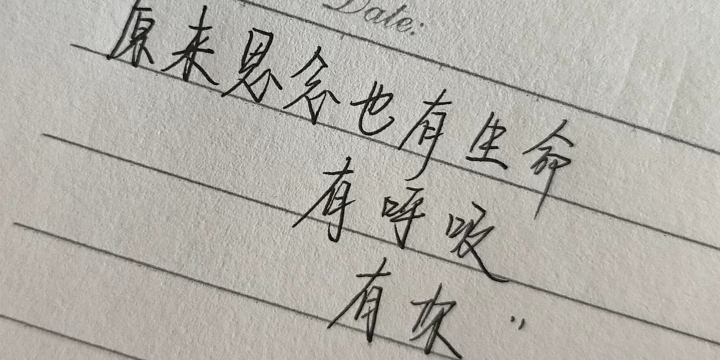 Date:
原来思念也有生命
有呼吸
有灰"